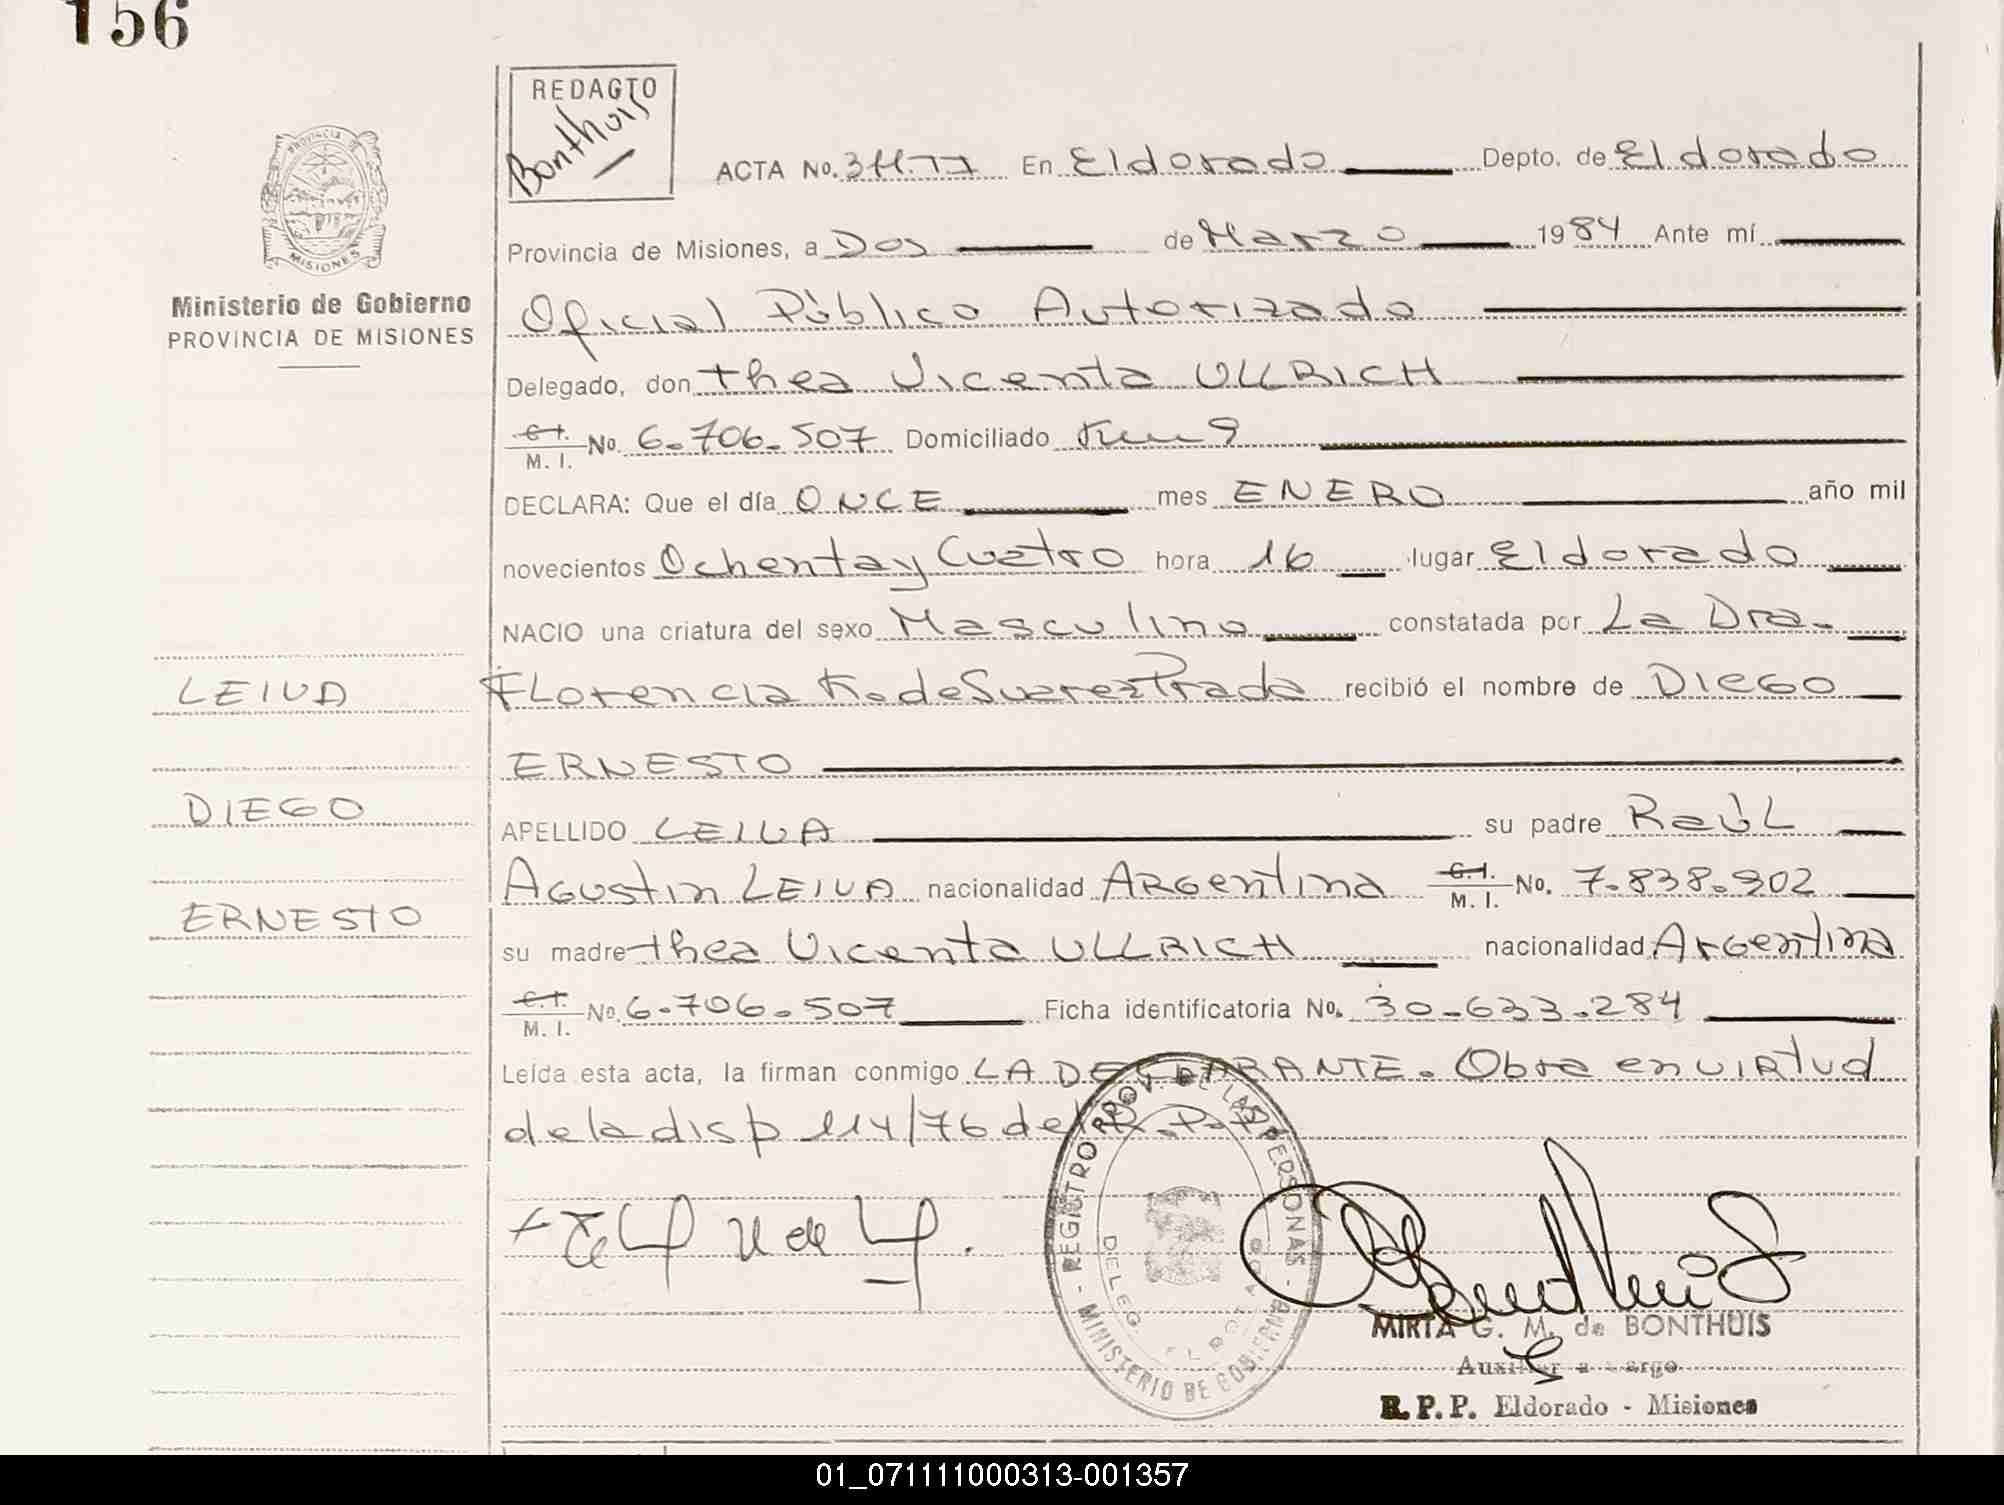 156
REDACTO
Bonthuis
ACTA No. En Eldorado Depto. de Eldorado
Provincia de Misiones, a Dos de Marzo 1984 Ante mí
Oficial Público Autorizado
Delegado, don thea Vicenta ULLRICH
C.I. M. I. No. 6.706.507 Domiciliado Km 9
DECLARA: Que el día ONCE mes ENERO año mil
novecientos Ochenta y Cuatro hora 16 lugar Eldorado
NACIO una criatura del sexo Masculino constatada por La Dra.
Florencia K. de Suarez Prada recibió el nombre de DIEGO
ERNESTO
APELLIDO LEIVA su padre RaúL
Agustin LEIVA nacionalidad Argentina C.I. M. I. No. 7.838.902
su madre thea Vicenta ULLRICH nacionalidad Argentina
C.I. M. I. No. 6.706.507 Ficha identificatoria No. 30.633.284
Leída esta acta, la firman conmigo LA DECLARANTE. Obra en virtud
de la disp 114/76 del R.P.P.
PROVINCIA DE
MISIONES
Ministerio de Gobierno
PROVINCIA DE MISIONES
LEIVA
DIEGO
ERNESTO
REGISTRO PROV. DE LAS PERSONAS - MINISTERIO DE GOBIERNO -
DELEG. ELDORADO
MIRTA G. M. de BONTHUIS
Auxiliar a cargo
R. P. P. Eldorado - Misiones
01_071111000313-001357